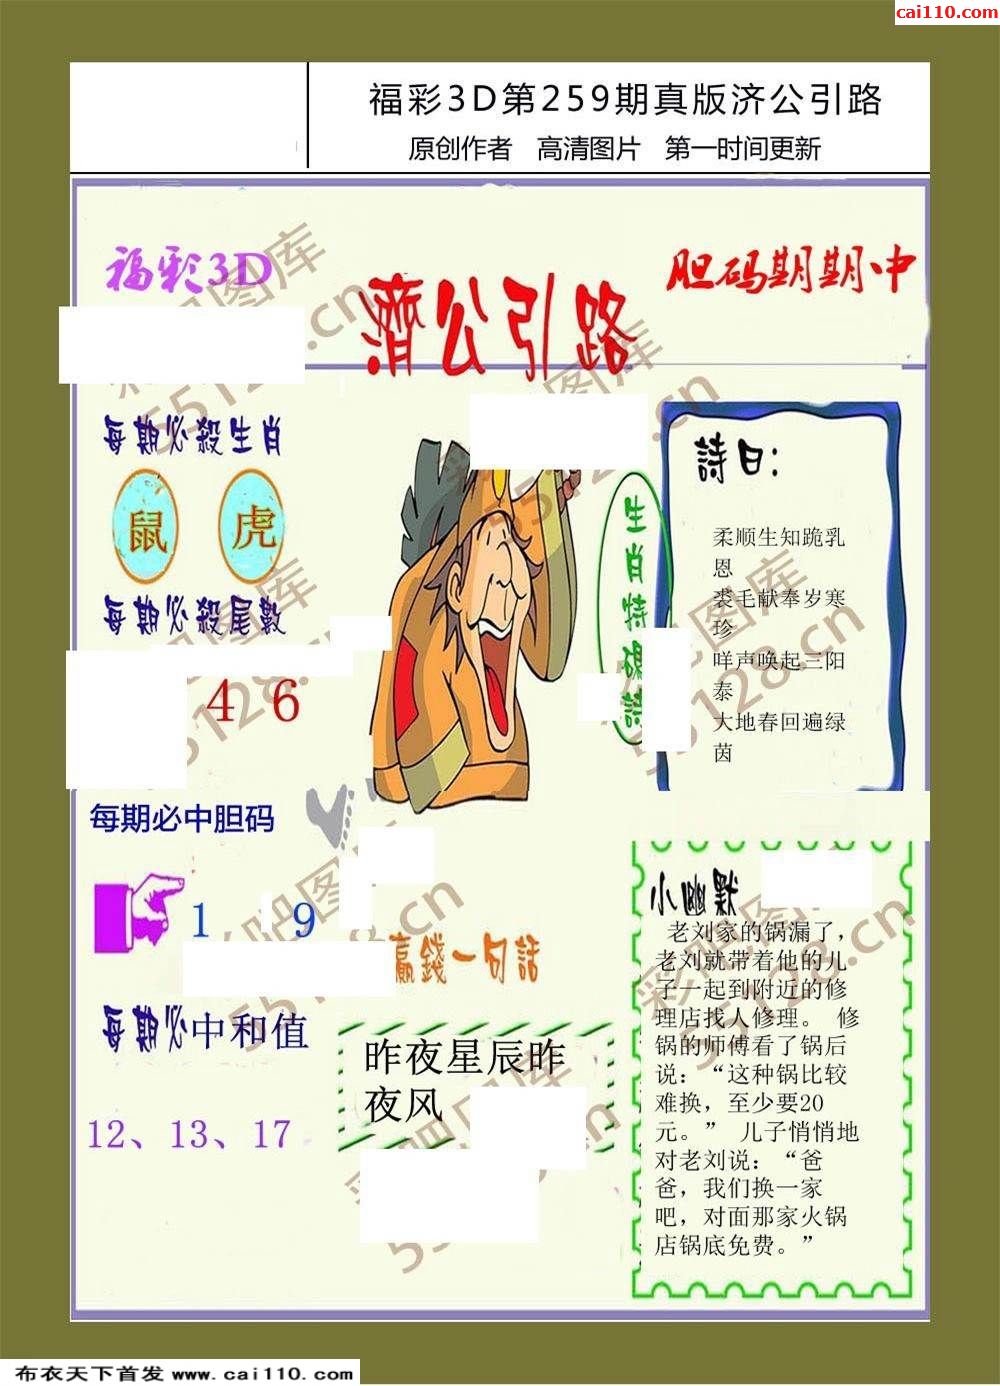 cai110.com
福彩3D第259期真版济公引路
原创作者 高清图片 第一时间更新
福彩3D
濟公引路
胆码期期中
每期必殺生肖
鼠 虎
每期必殺尾數
4 6
每期必中胆码
1 9
每期必中和值
12、13、17
生肖特碼詩
詩曰：
柔顺生知跪乳
恩
裘毛献奉岁寒
珍
咩声唤起三阳
泰
大地春回遍绿
茵
贏錢一句話
昨夜星辰昨
夜风
小幽默
老刘家的锅漏了，
老刘就带着他的儿
子一起到附近的修
理店找人修理。 修
锅的师傅看了锅后
说：“这种锅比较
难换，至少要20
元。” 儿子悄悄地
对老刘说：“爸
爸，我们换一家
吧，对面那家火锅
店锅底免费。”
彩吧图库
55128.cn
布衣天下首发 www.cai110.com